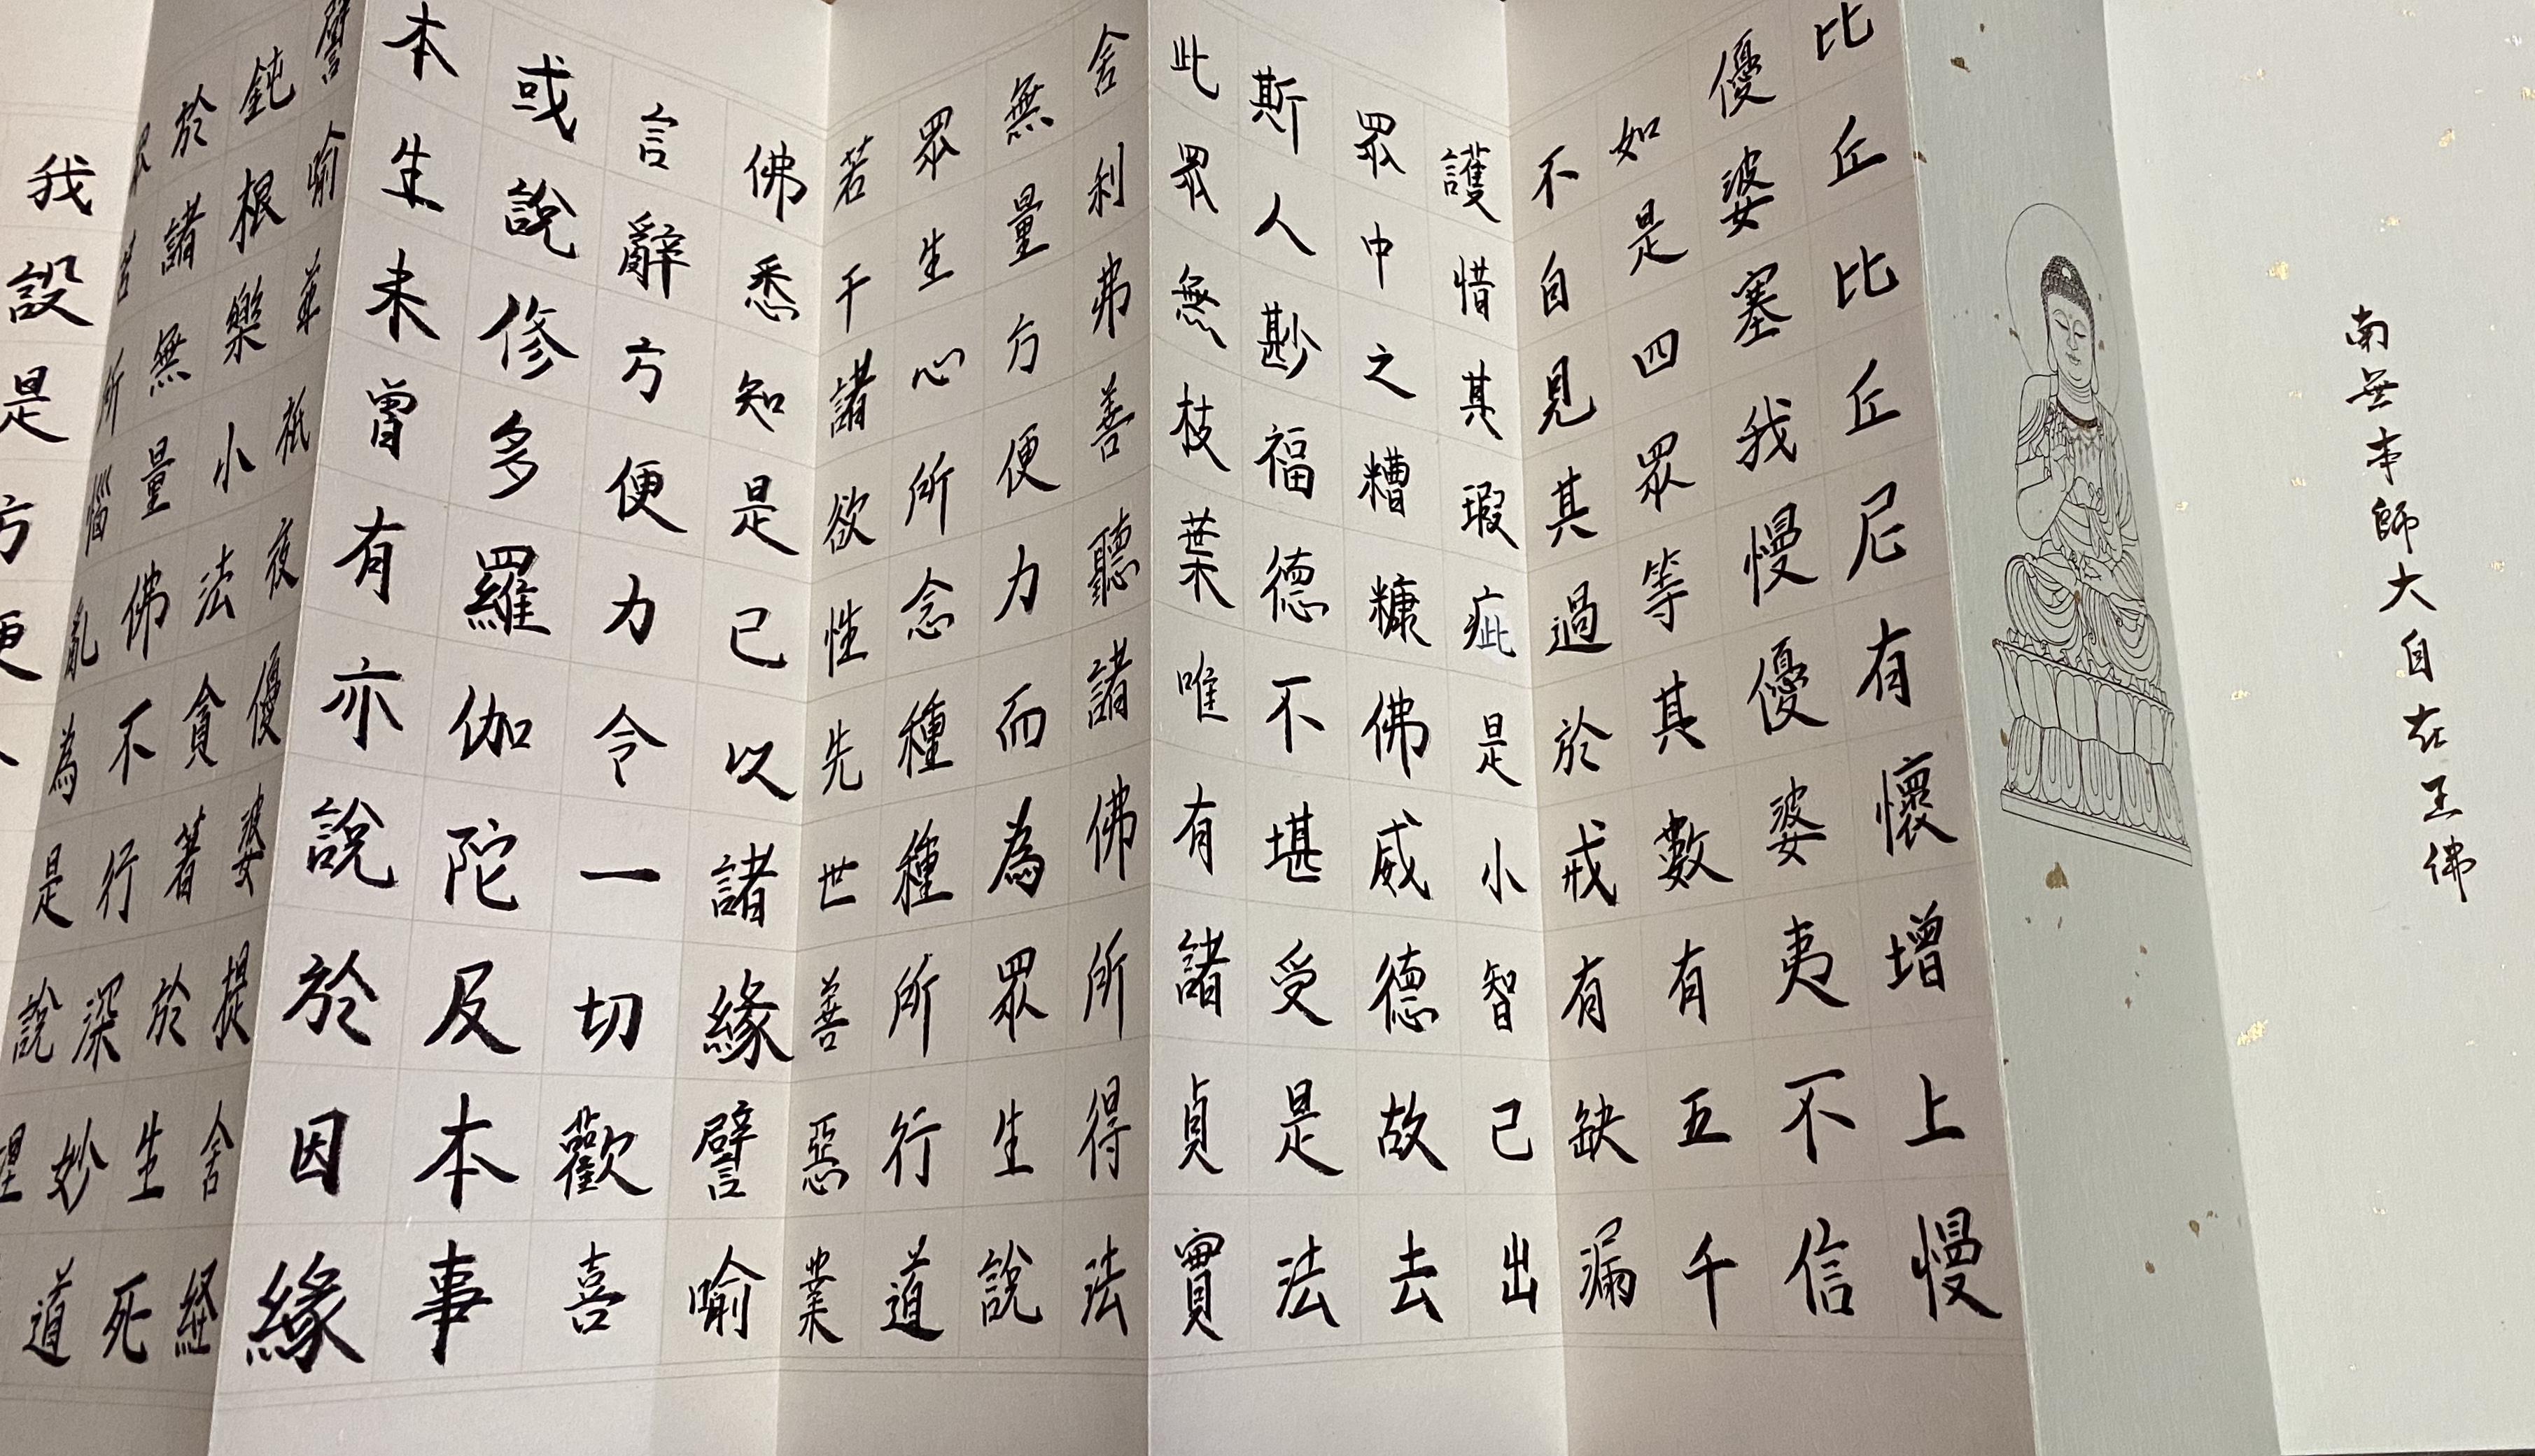 南無本師大自在王佛
比丘比丘尼有懷增上慢
優婆塞我慢優婆夷不信
如是四眾等其數有五千
不自見其過於戒有缺漏
護惜其瑕疵是小智已出
眾中之糟糠佛威德故去
斯人尠福德不堪受是法
此眾無枝葉唯有諸貞實
舍利弗善聽諸佛所得法
無量方便力而為眾生說
眾生心所念種種所行道
若干諸欲性先世善惡業
佛悉知是已以諸緣譬喻
言辭方便力令一切歡喜
或說修多羅伽陀及本事
本生未曾有亦說於因緣
譬喻并祇夜優婆提舍経
鈍根樂小法貪著於生死
於諸無量佛不行深妙道
眾苦所惱亂為是說涅
我設是方便